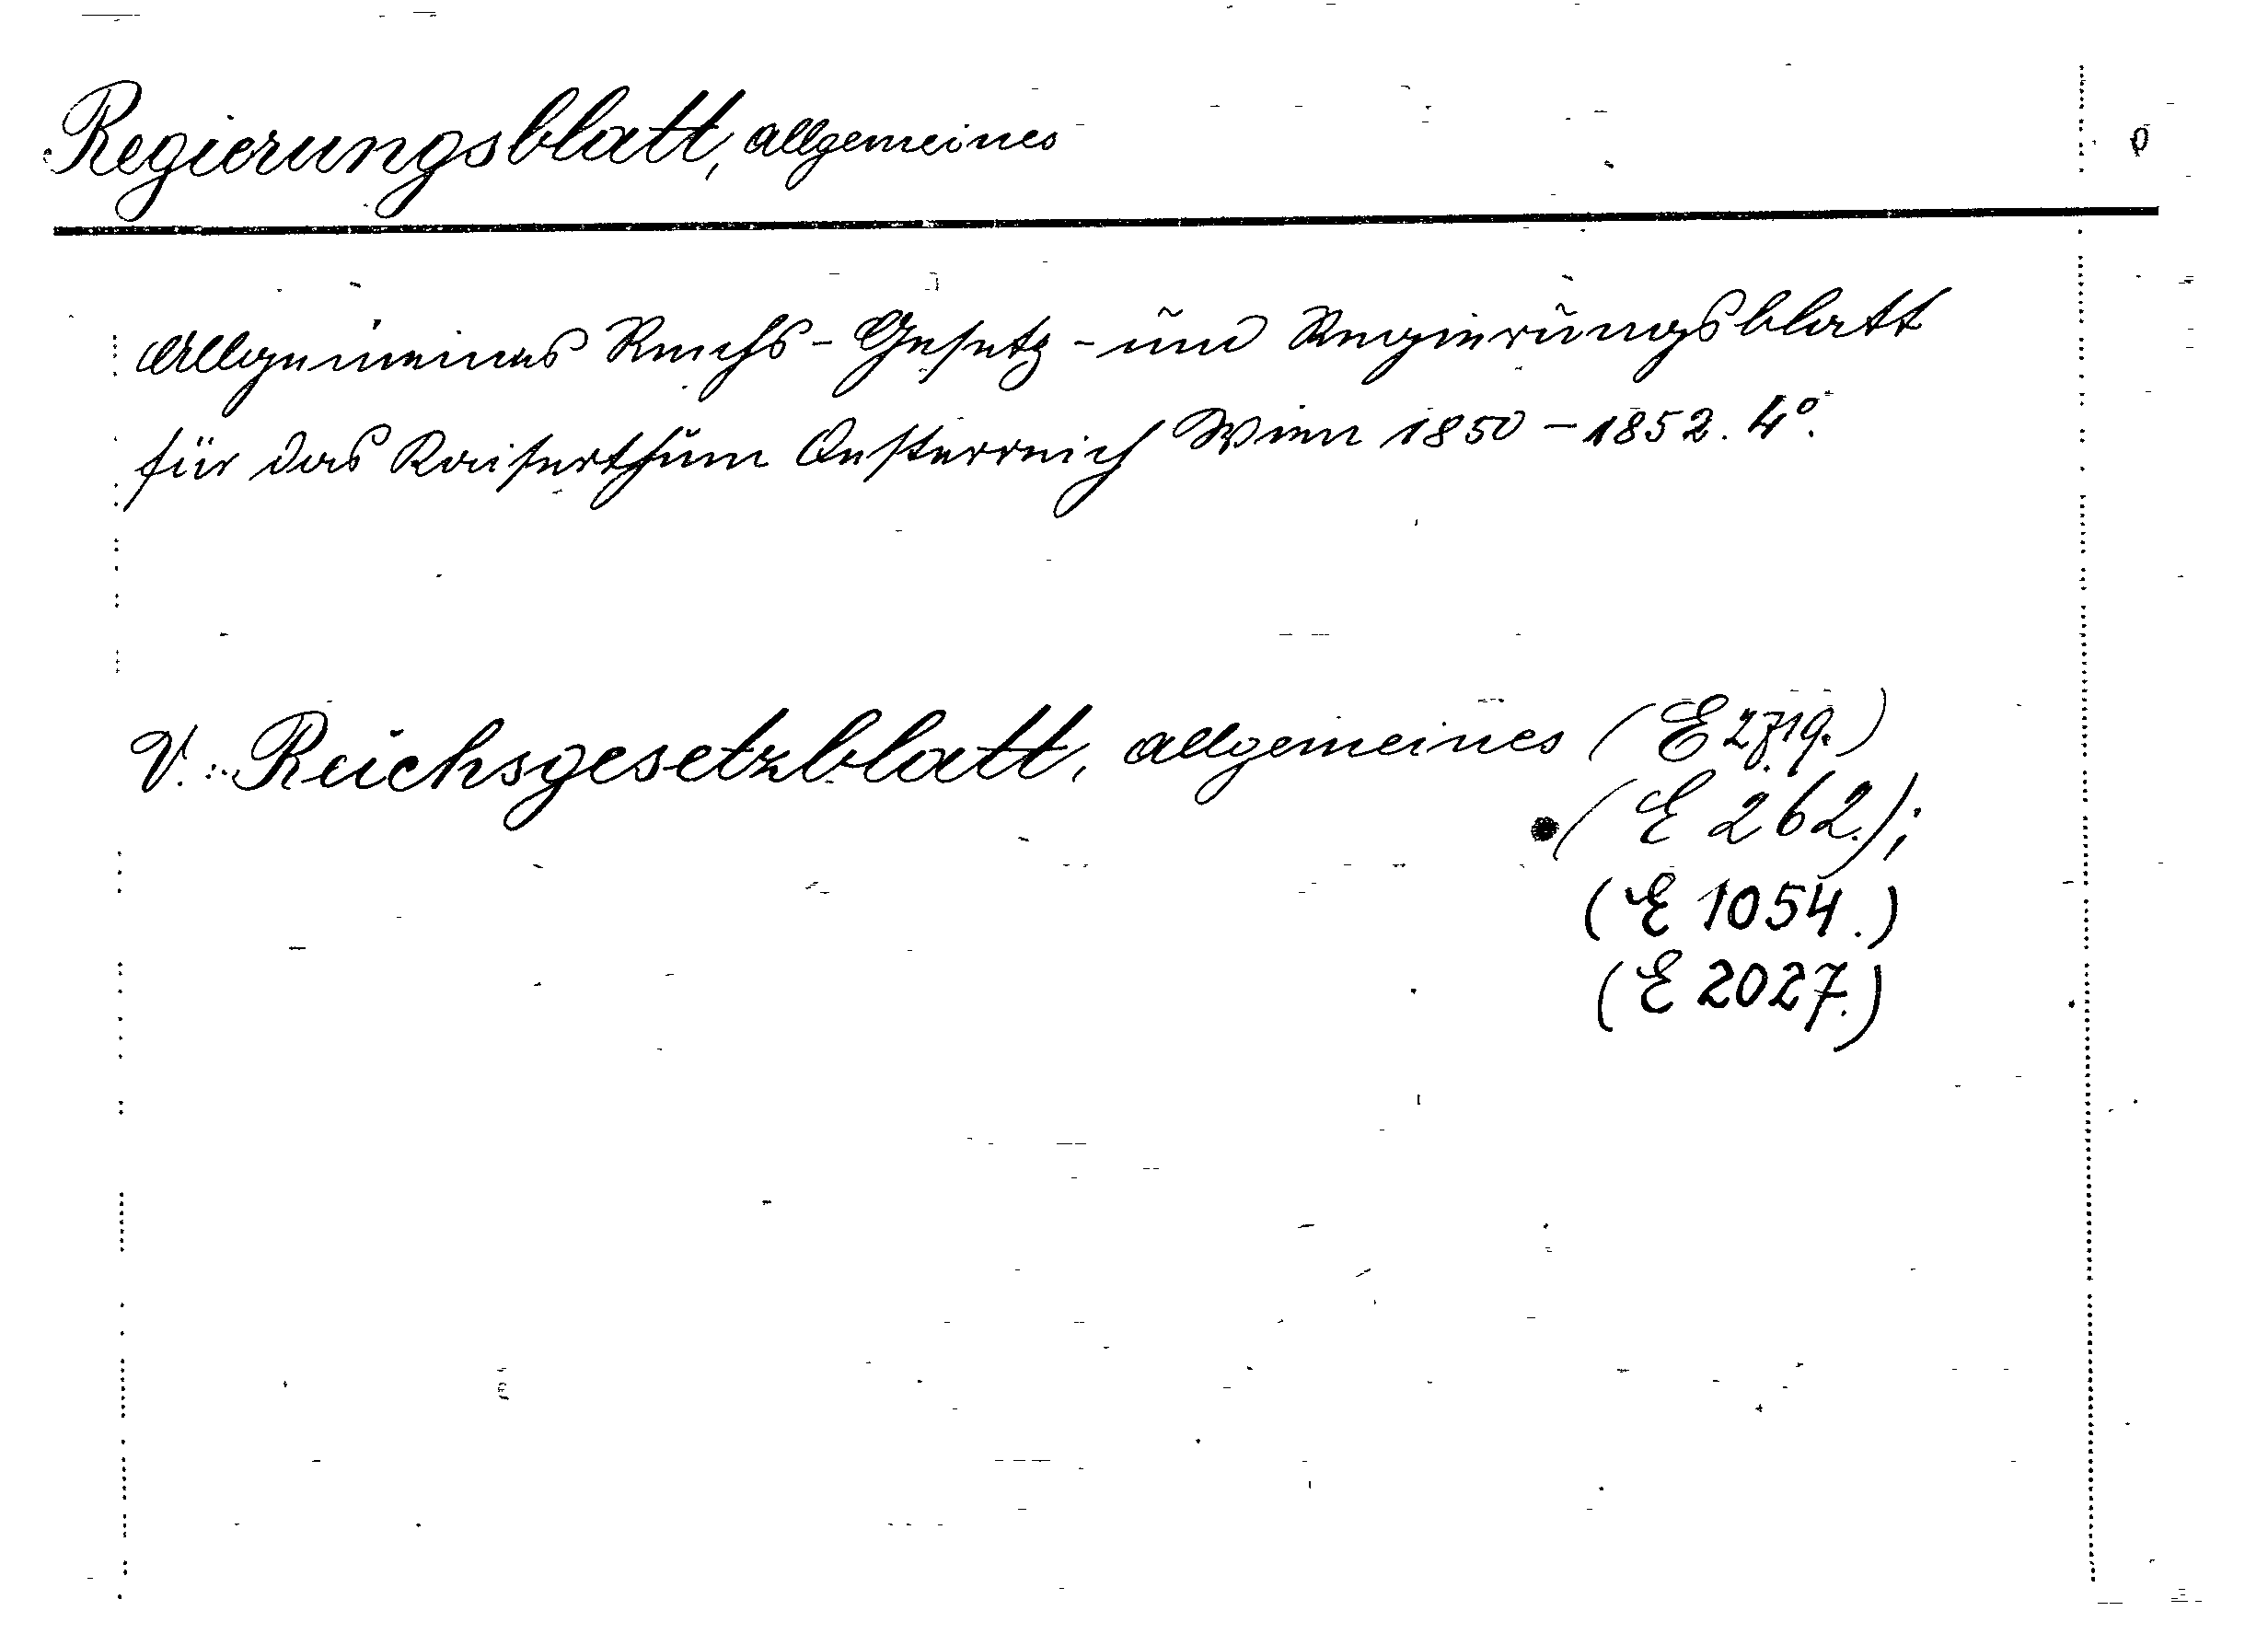 Regierungsblatt, allgemeines
Allgemeines Reichs-Gesetz- und Regierungsblatt
für das Kaiserthum Oesterreich Wien 1850-1852. 4°.
V.: Reichsgesetzblatt, allgemeines (E 2719.)
(E 262.);
(E 1054.)
(E 2027.)